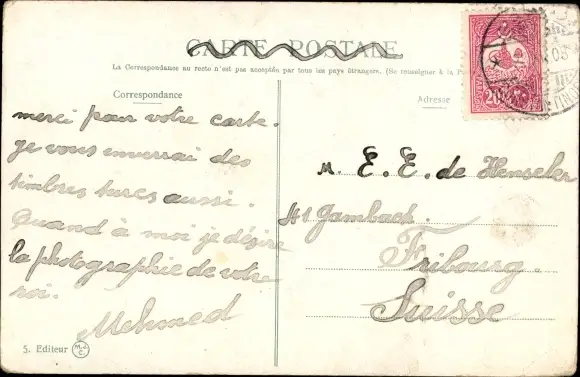 CARTE POSTALE
La Correspondance au recto n'est pas acceptée par tous les pays étrangers. (Se renseigner à la
Correspondance
Adresse
20
merci pour votre carte.
je vous enverrai des
timbres turcs aussi.
Quand à moi je désire
la photographie de votre
roi.
Mehmed
M. E. E. de Henseler
Gambach.
Fribourg.
Suisse
5. Editeur M.J.C.